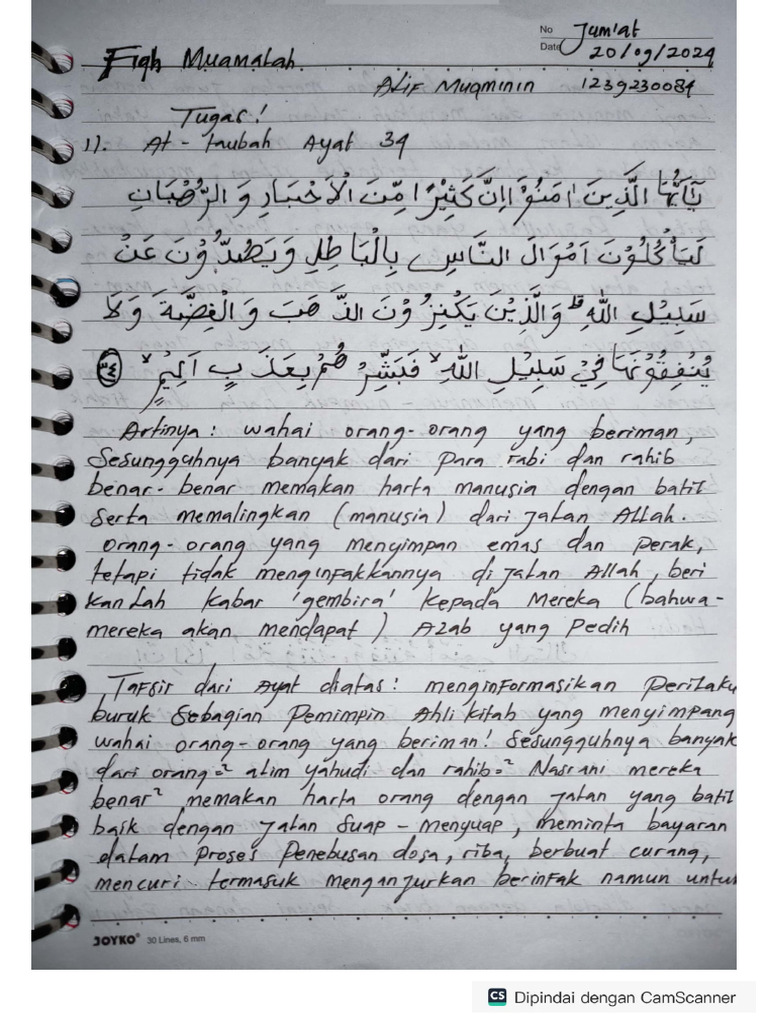 No Jum'at
Date 20/09/2024
Fiqh Muamalah
Alif Muqminin 1239230084
Tugas!
1). At-taubah Ayat 34
يٰٓاَيُّهَا الَّذِيْنَ اٰمَنُوْٓا اِنَّ كَثِيْرًا مِّنَ الْاَحْبَارِ وَ الرُّهْبَانِ
لَيَأْكُلُوْنَ اَمْوَالَ النَّاسِ بِالْبَاطِلِ وَيَصُدُّوْنَ عَنْ
سَبِيْلِ اللّٰهِ ۗ وَالَّذِيْنَ يَكْنِزُوْنَ الذَّهَبَ وَ الْفِضَّةَ وَلَا
يُنْفِقُوْنَهَا فِيْ سَبِيْلِ اللّٰهِ ۙ فَبَشِّرْهُمْ بِعَذَابٍ اَلِيْمٍ ۙ ٣٤
Artinya : wahai orang-orang yang beriman,
Sesungguhnya banyak dari para rabi dan rahib
benar-benar memakan harta manusia dengan batil
serta memalingkan (manusia) dari jalan Allah.
orang-orang yang menyimpan emas dan perak,
tetapi tidak menginfakkannya di jalan Allah, beri
kanlah kabar 'gembira' kepada Mereka (bahwa-
mereka akan mendapat) Azab yang pedih
Tafsir dari Ayat diatas : menginformasikan perilaku
buruk sebagian pemimpin Ahli kitab yang menyimpang
wahai orang-orang yang beriman! Sesungguhnya banyak
dari orang=² alim yahudi dan rahib=² Nasrani mereka
benar² memakan harta orang dengan jalan yang batil
baik dengan jalan suap-menyuap, meminta bayaran
dalam proses penebusan dosa, riba, berbuat curang,
mencuri termasuk menganjurkan berinfak namun untuk
JOYKO 30 Lines, 6 mm
CS Dipindai dengan CamScanner